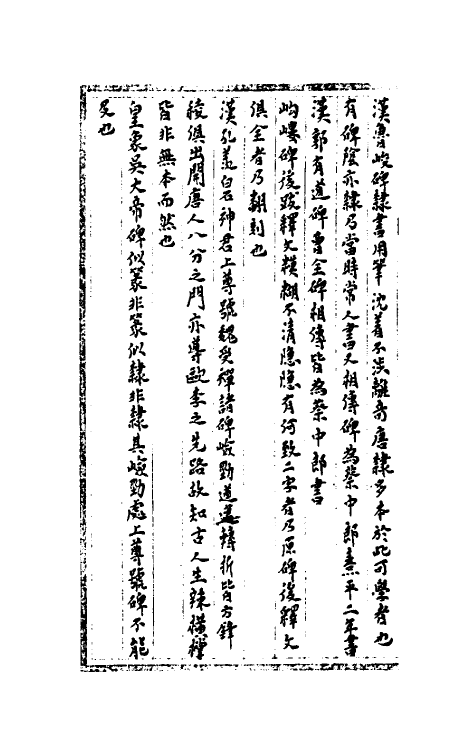 漢魯峻碑隸書用筆沈着不淡離奇唐隸多本於此可學者也
有碑陰亦隸乃當時常人書又相傳碑為蔡中郎熹平二年書
漢郭有道碑魯全碑相傳皆為蔡中郎書
岣嶁碑後跋釋文模糊不清隱隱有何致二字者乃原碑後釋文
俱全者乃翻刻也
漢孔羨白石神君上尊號魏受禪諸碑嶮勁遒邁轉折皆方鋒
稜俱出開唐人八分之門亦導歐李之先路故知古人生辣橫
皆非無本而然也
皇象吳大帝碑似篆非篆似隸非隸其嶮勁處上尊號碑不能
及也